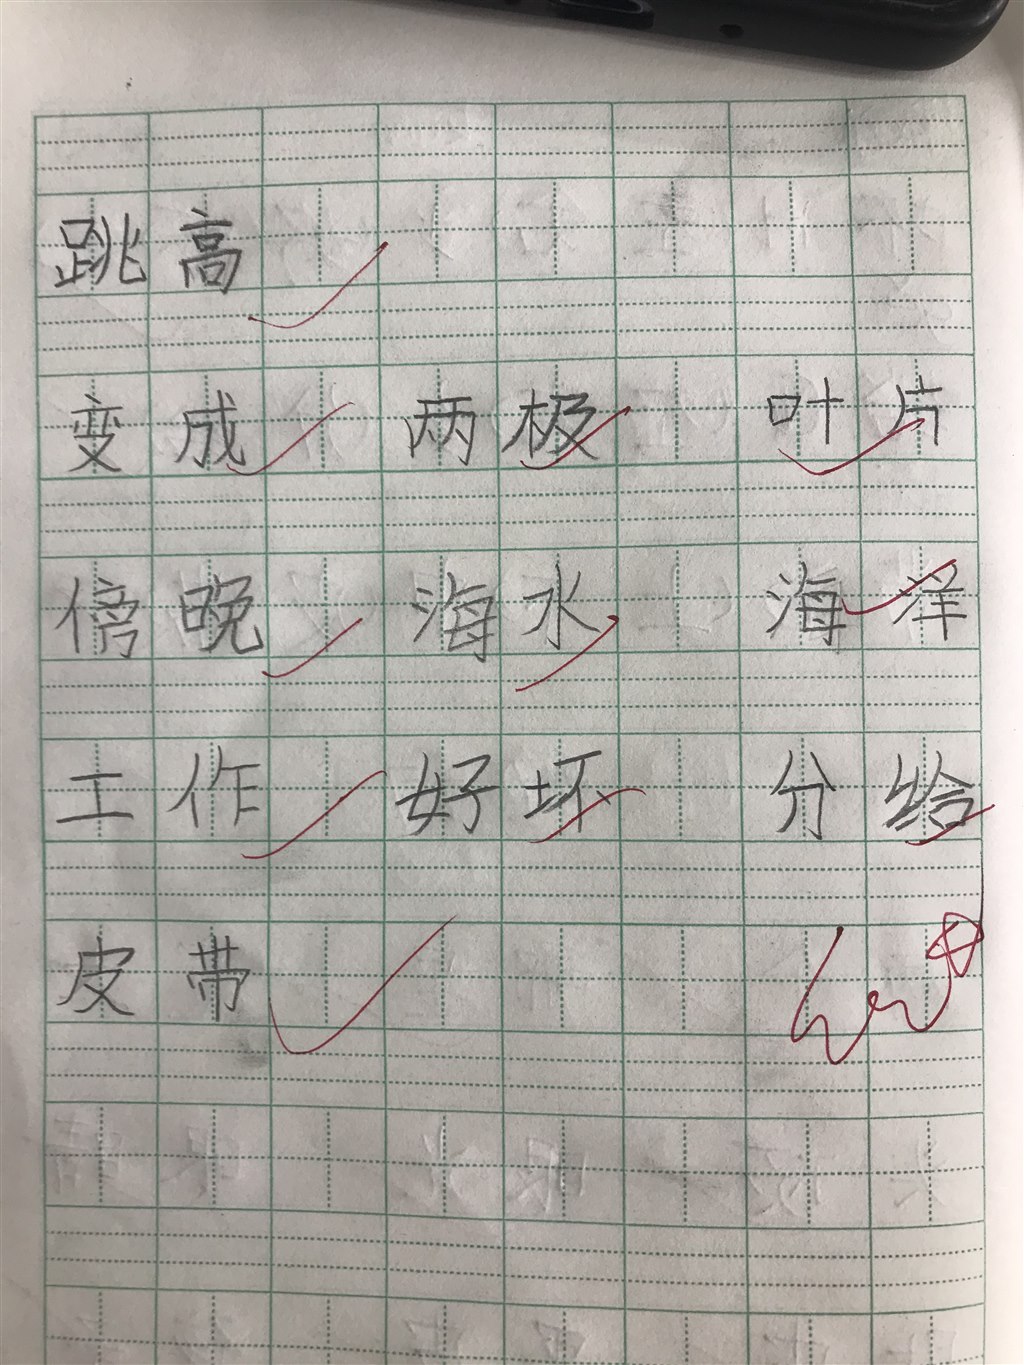 跳高
变成 两极 叶片
傍晚 海水 海洋
工作 好坏 分给
皮带